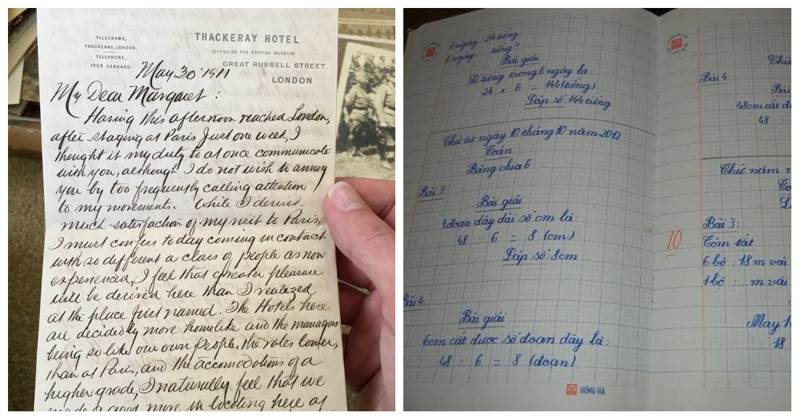 TELEGRAMS,
THACKERAY, LONDON.
TELEPHONE,
THACKERAY HOTEL
(OPPOSITE THE BRITISH MUSEUM)
GREAT RUSSELL STREET.
LONDON
May 30 1911
My Dear Margaret:
Having this afternoon reached London,
after staging at Paris just one week, I
thought it my duty to at once communicate
with you, although I do not wish to annoy
you by too frequently calling attention
to my movements. While I derived
much satisfaction of my visit to Paris,
I must confess today coming in contact
with so different a class of people as now
experienced, I feel that greater pleasure
will be derived here than I realized
at the place first named. The Hotels here
are decidedly more homelike and the managers
being so like our own people, the rates lower,
than at Paris, and the accomodations of a
higher grade, I naturally feel that we
more in locating here at
1 ngày : 24 tiếng
6 ngày : tiếng?
Bài giải
Số tiếng trong 6 ngày là:
24 x 6 = 144 (tiếng)
Đáp số: 144 tiếng
Thứ tư ngày 10 tháng 10 năm 2012
Toán
Bảng chia 6
Bài 3:
Bài giải
1 đoạn dây dài số cm là:
48 : 6 = 8 (cm)
Đáp số: 8cm
Bài 4:
Bài giải
6cm cắt được số đoạn dây là:
48 : 6 = 8 (đoạn)
HỒNG HÀ
Thứ
Bài 4:
Bài
48cm cắt đ
48 :
Thứ năm n
To
L
10
Bài 3:
Tóm tắt
6 bộ : 18 m vải
1 bộ : ... m vải
May 1
18